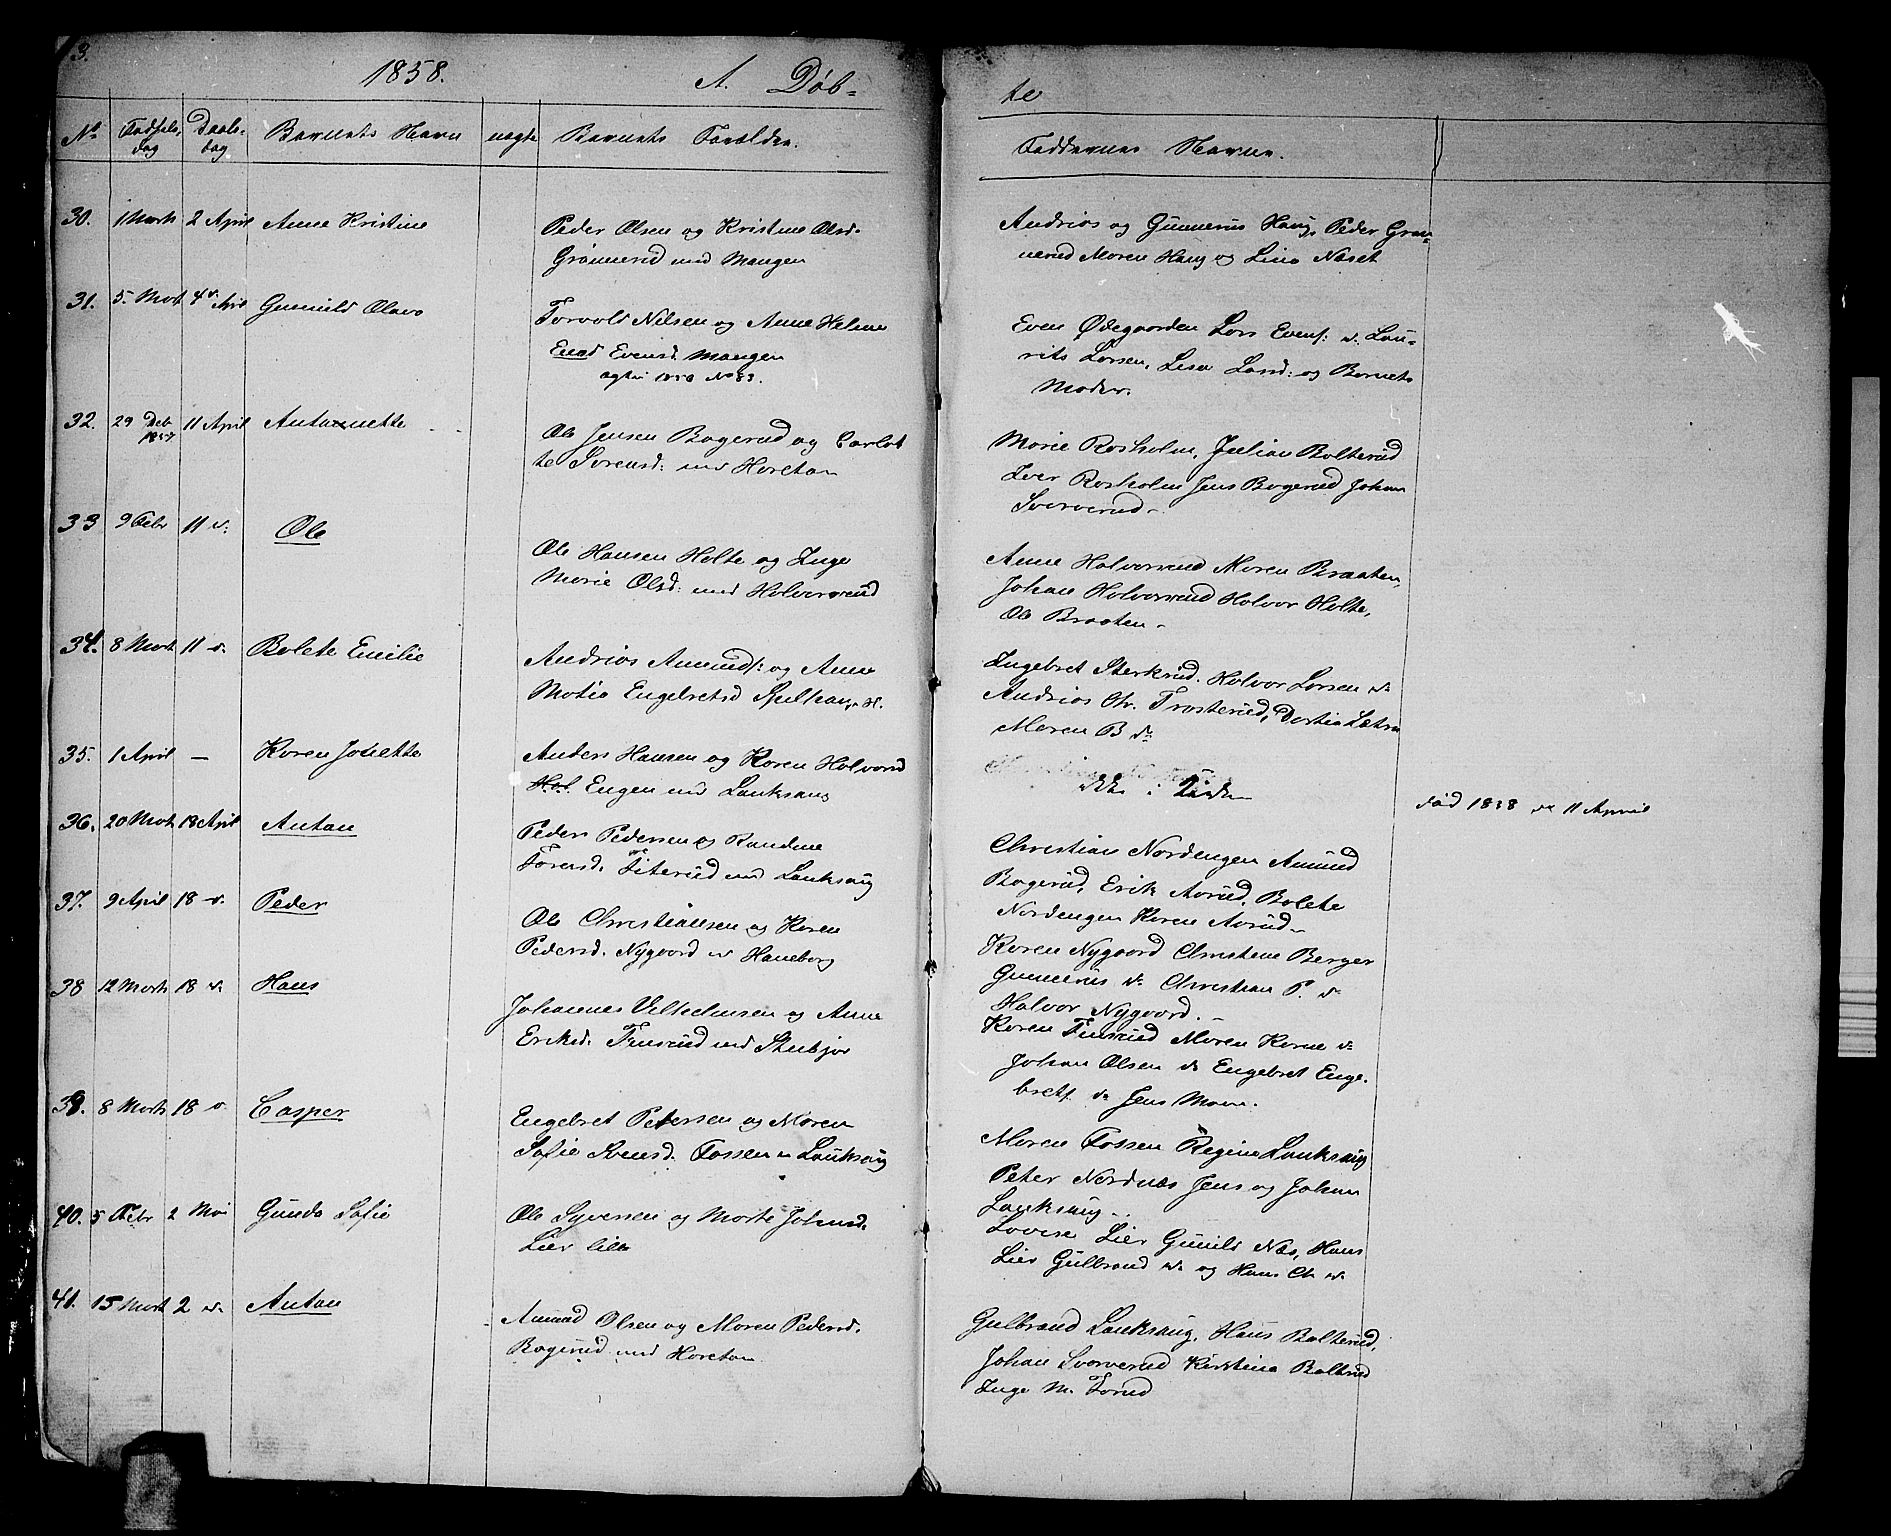 3.
1858. A. Døb-
te
No Fødsels dag Daabs- dag Barnets Navn uægte Barnets Forældre.
Faddernes Navne.
30. 1 Marts 2 April Anne Kristine
Peder Olsen og Kristine Olsd.
Grønnerud Mangen
Andrias og Gunnerus Haug, Peder Grøn-
nerud Maren Haug og Lina Næset
31. 5. Mart 4de April Gunnild Olava
Torvald Nilsen og Anne Helene
Evensd. Mangen
No 83.
Even Ødegaarden Lars Evens: d. Lau-
rits Larsen, Lisa Land: og Barnets
Moder.
32. 29 Deb 1857 11 April Antonette
Ole Jensen Bøgerud og Carlot
te Sørensd:
Marie Rosholm, Julian Bolterud
Iver Rosholm Jens Bøgerud Johan
Svarverud.
33 9 Febr 11 d. Ole
Ole Hansen Holte og Inge
Marie Olsd: Halvorsrud
Anne Halvorsrud Maren Braaten,
Johan Halvorsrud Halvor Holte,
Ole Braaten.
34. 8 Mart 11 d. Bolete Emilie
Andrias Amunds: og Anne
Matia Engebretsd
Ingebret Sterkrud. Halvor Larsen do
Andrias Chr. Trosterud,
Maren B do
35. 1 April — Karen Josette
Anders Hansen og Karen Halvorsd
Engen Lauksaug
ikke i Kirken
død 1858 11 April
36. 20 Mart 18 April Antan
Peder Pedersen og Randine
Titerud Lauksaug
Christian Nordengen Amund
Bøgerud, Erik Aarud, Bolete
Nordengen Karen Aarud.
37. 9 April 18 d. Peder
Ole Christiansen og Karen
Pedersd. Nygaard Haneborg
Karen Nygaard Christene Berger
Gunnerus do Christian P. do
Halvor Nygaard.
38 12 Marts 18 d. Hans
Johannes Vilhelmsen og Anne
Eriksd. Tinsrud
Karen Tinsrud Maren Korne do
Johan Olsen do Engebret Enge-
brets. do Jens Moen.
39. 8 Marts 18 d. Casper
Engebret Petersen og Maren
Sofie Fossen Lauksaug
Maren Fossen Regine Lauksaug
Peter Nordnæs Jens og Johan
Lauksaug.
40. 5 Febr 2 Mai Gunda Sofie
Ole Syversen og Marte Johansd.
Lier lille
Lovise Lier Gunild Næs, Hans
Lier Gulbrand do og Hans Ch do
41. 15 Mart 2 d. Antan
Amund Olsen og Maren Pedersd.
Bøgerud
Gulbrand Lauksaug, Hans Bolterud,
Johan Svarverud Kirstine Bolterud
Inge M. Torud